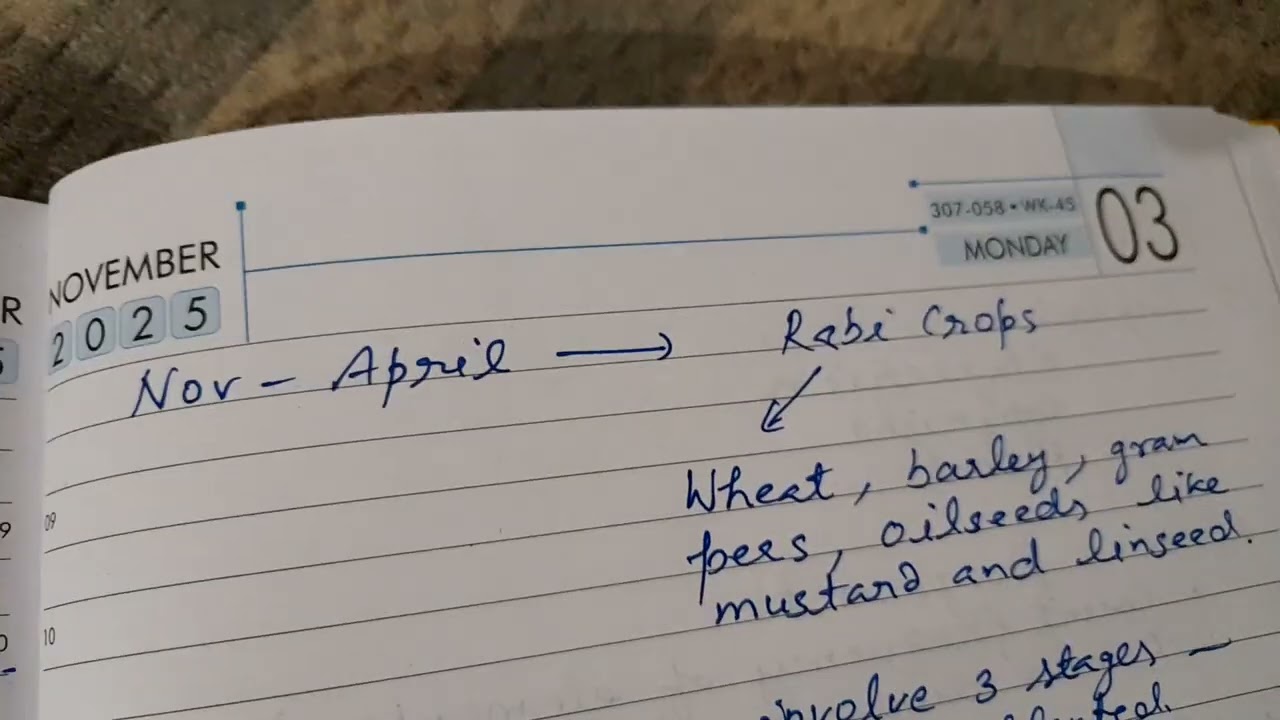 307-058 • WK-45
NOVEMBER
MONDAY
03
2025
Nov - April → Rabi Crops
Wheat, barley, gram
peas, oilseeds like
mustard and linseed.
09
10
involve 3 stages -
R
9